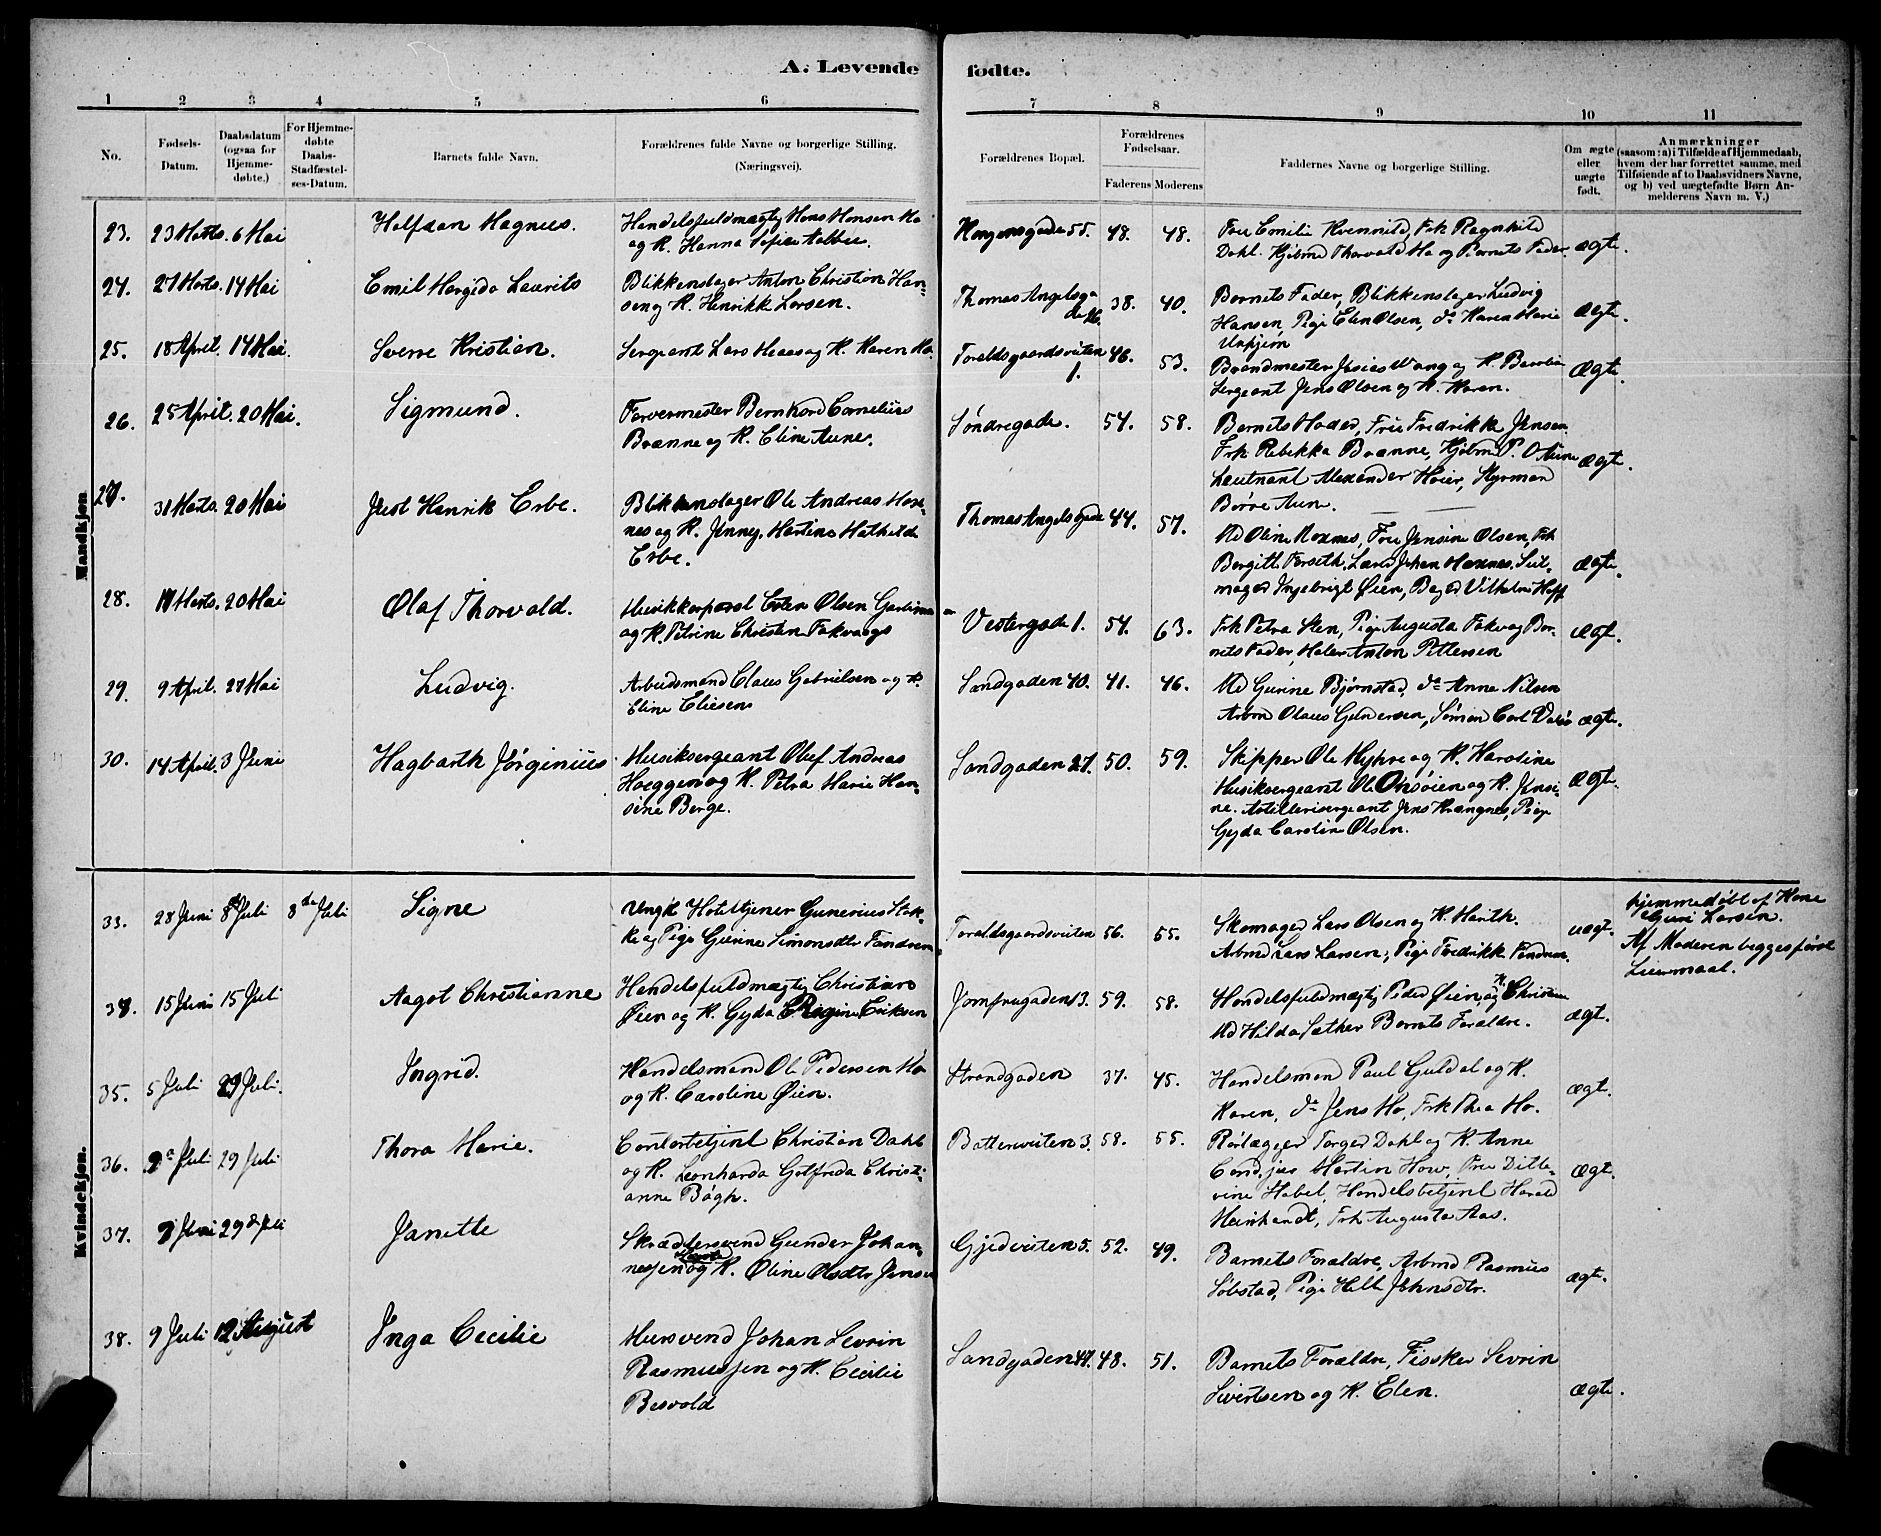 A. Levende fødte.
1 2 3 4 5 6 7 8 9 10 11
No.
Fødsels-
Datum.
Daabsdatum
(ogsaa for
Hjemme-
døbte.)
For Hjemme-
døbte
Daabs-
Stadfæstel-
ses-Datum.
Barnets fulde Navn.
Forældrenes fulde Navne og borgerlige Stilling.
(Næringsvei).
Forældrenes Bopæl.
Forældrenes
Fødselsaar.
Faderens Moderens
Faddernes Navne og borgerlige Stilling.
Om ægte
eller
uægte
født.
Anmærkninger
(saasom: a) i Tilfælde af Hjemmedaab,
hvem der har forrettet samme, med
Tilføiende af to Daabsvidners Navne,
og b) ved uægtefødte Børn An-
melderens Navn m. V.)
Mandkjøn
23. 23 Marts. 6 Mai Halfdan Magnus.
Handelsfuldmægtig Hans Hansen Ho
og K. Hanna Sofie
48. 48.
Fru Emilie Kvennild, Frk Ragnhild
Dahl. Kjøbmd Thorvald Ho og Barnets Fader.
ægte.
24. 27 Marts. 14 Mai Emil Laurits
Blikkenslager Anton Christian Han-
sen og K. Henrikke Larsen.
Thomas Angelsga
de
38. 40.
Barnets Fader, Blikkenslager Ludvig
Hansen, Pige Elen Olsen, do Karen Marie
Ægte.
25. 18 April. 14 Mai. Sverre Kristian.
Sergeant Lars og K. Karen
1.
46. 53.
Brandmester Wang og K.
Sergeant Jens Olsen og K. Karen.
Ægte.
26. 25 April. 20 Mai. Sigmund.
Farvermester Bernhard Cornelius
Brænne og K. Eline Aune.
Søndregade. 54. 58.
Barnets Moder, Frue Fredrikke Jensen
Frk Rebekka Brænne, Kjøbmd P. O Aune
Lieutnant Alexander Høier, Styrmand
Børre Aun.
ægte.
27. 31 Marts. 20 Mai Just Henrik Erbe.
Blikkenslager Ole Andreas Mox-
nes og K. Jenny Martine Mathilde
Erbe.
Thomas Angels gade 44. 57.
Md Oline Moxnes, Frue Jensine Olsen, Frk
Bergitte Forseth, Johan Moxnes, Seil-
mager Ingebrigt Øien, Bager Vilhelm Hoff
ægte.
28. 11 Marts. 20 Mai Olaf Thorvald.
Musikkorporal Esten Olsen
og K. Petrine
Vestergade 1. 54. 63.
Frk Petra Sten, Pige Augusta Fakvag Bar-
nets Fader, Maler Anton Pettersen
ægt.
29. 9 April. 27 Mai Ludvig.
Arbeidsmand Claus Gabrielsen og K.
Eline Eliesen
Sandgaden 40. 41. 46.
Md Gurine Bjørnstad, do Anne Nilsen
Arbmd Olaus Gundersen, Sømand Carl
ægte.
30. 14 April. 3 Juni Hagbarth Jørginius.
Musiksergeant Olaf Andreas
Hoeggen og K. Petra Marie Han-
sine Berge.
Sandgaden 27. 50. 59.
Skipper Ole Myhre og K. Karoline
Musiksergeant Ole Onsøien og K. Jensi-
ne. Artillerisergeant Jens Krangnes, Pige
Gyda Caroline Olsen.
Ægte.
Kvindekjøn.
33. 28 Juni 8de Juli 8de Juli Signe
Ungk Hoteltjener Gunerius Stok-
ke og Pige Gurine Simonsdtr
56. 55.
Skomager Lars Olsen og K. Marith.
Arbmd Lars Larsen, Pige Fredrikke
uægt.
hjemmedøbt af Kone
Guri Larsen.
Af Moderen begges første
Leiermaal.
34. 15 Juni 15 Juli Aagot Christianne
Handelsfuldmægtig Christian
Øien og K. Gyda Regine Eriksen
Jomfrugaden 13. 59. 58.
Handelsfuldmægtig Peder Øien og K. Christine
Md Hilda Sæther Barnets Forældre.
ægt.
35. 5 Juli 29 Juli. Ingrid.
Handelsmand Ole Pedersen Ho
og K. Caroline Øien.
Strandgaden 37. 45.
Handelsmand Paul Guldal og K.
Karen, do Jens Ho, Frk Thea Ho.
ægt.
36. 2de Juli 29 Juli Thora Marie.
Contorbetjent Christian Dahl
og K. Leonharda Golfrida Christi-
anne Bøgh.
Batteriveiten 3. 58. 55.
Rørlægger Torger Dahl og K. Anne
Cand. jur Martin How, Frue Ditle-
vine Habel, Handelsbetjent Harald
Meinhardt, Frk Augusta Aas.
Ægt.
37. 7 Juni 29de Juli Janette
Skræddersvend Gunder Johan-
nesen og K. Oline Olsdtr Jensen
Gjedveiten 5. 52. 49.
Barnets Forældre, Arbmd Rasmus
Sobstad, Pige Johnsdtr.
ægt.
38. 9 Juli 12 August Inga Cecilie
Mursvend Johan Sevrin
Rasmussen og K. Cecilie
Besvold
Sandgaden 47. 48. 51.
Barnets Forældre, Fissker Sevrin
Sivertsen og K. Elen.
ægt.